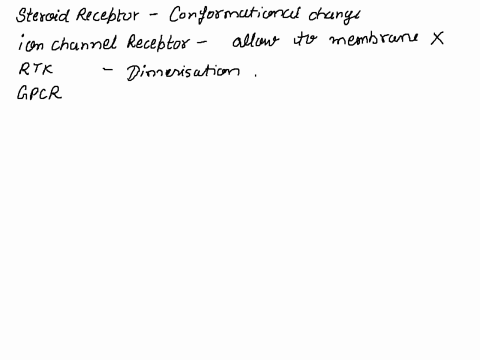 Steroid Receptor - Conformational change
ion channel Receptor - allow to membrane X
RTK - Dimerisation .
GPCR